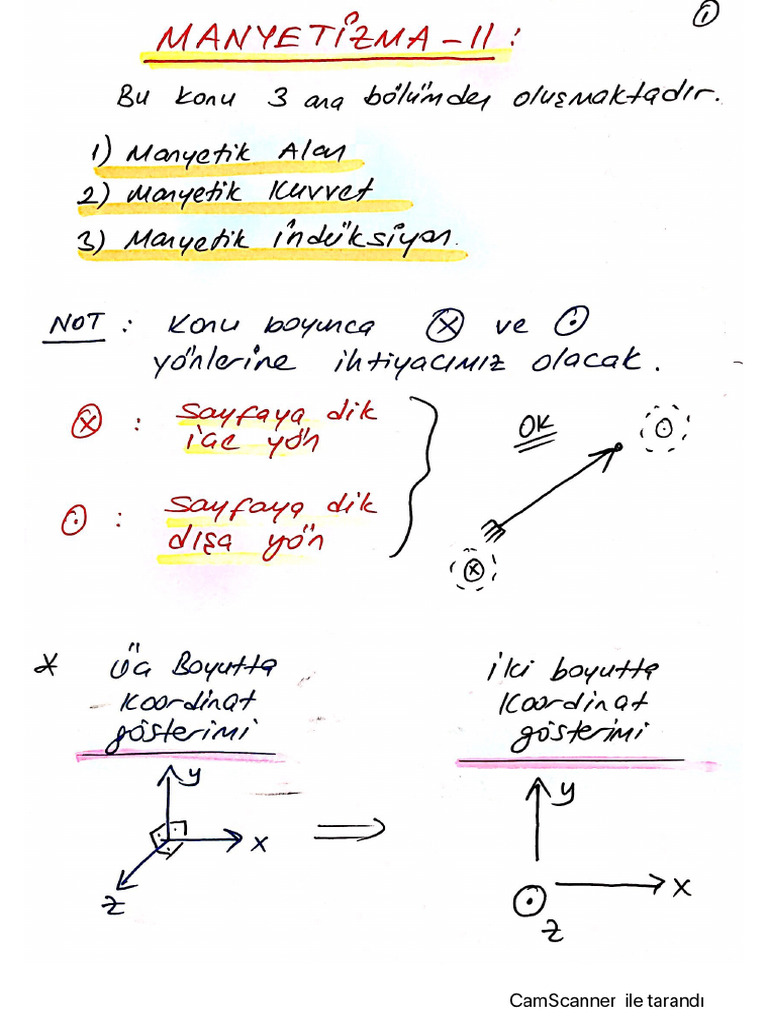 ①
MANYETİZMA - II :
Bu konu 3 ana bölümden oluşmaktadır.
1) Manyetik Alan
2) Manyetik Kuvvet
3) Manyetik İndüksiyon.
NOT : Konu boyunca ⊗ ve ⊙
yönlerine ihtiyacımız olacak.
⊗ : Sayfaya dik
içe yön
⊙ : Sayfaya dik
dışa yön
OK
⊙
⊗
* Üç Boyutta
Koordinat
gösterimi
y
x
z
⇒
İki boyutta
Koordinat
gösterimi
y
x
⊙
z
CamScanner ile tarandı